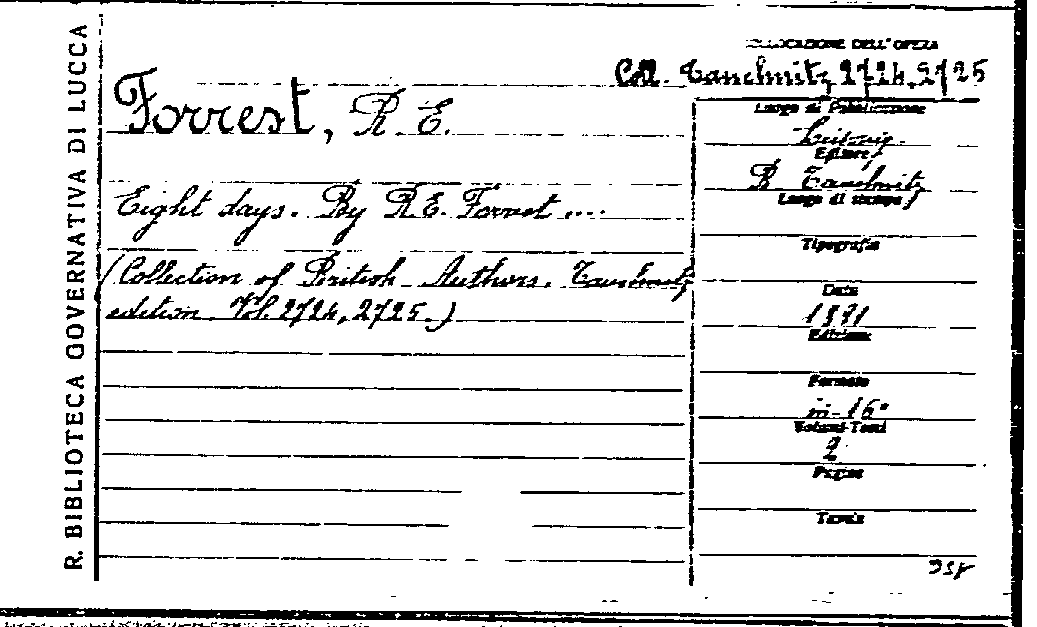 R. BIBLIOTECA GOVERNATIVA DI LUCCA
COLLOCAZIONE DELL'OPERA
Coll. Tauchnitz 2724, 2725
Forrest, R. E.
Eight days. By R. E. Forrest ....
(Collection of British Authors. Tauchnitz
edition. Vol. 2724, 2725.)
Luogo di Pubblicazione
Leipzig
Editore
B. Tauchnitz
Luogo di stampa
Tipografia
Data
1891
Edizione
Formato
in-16°
Volumi-Tomi
2
Pagine
Tavole